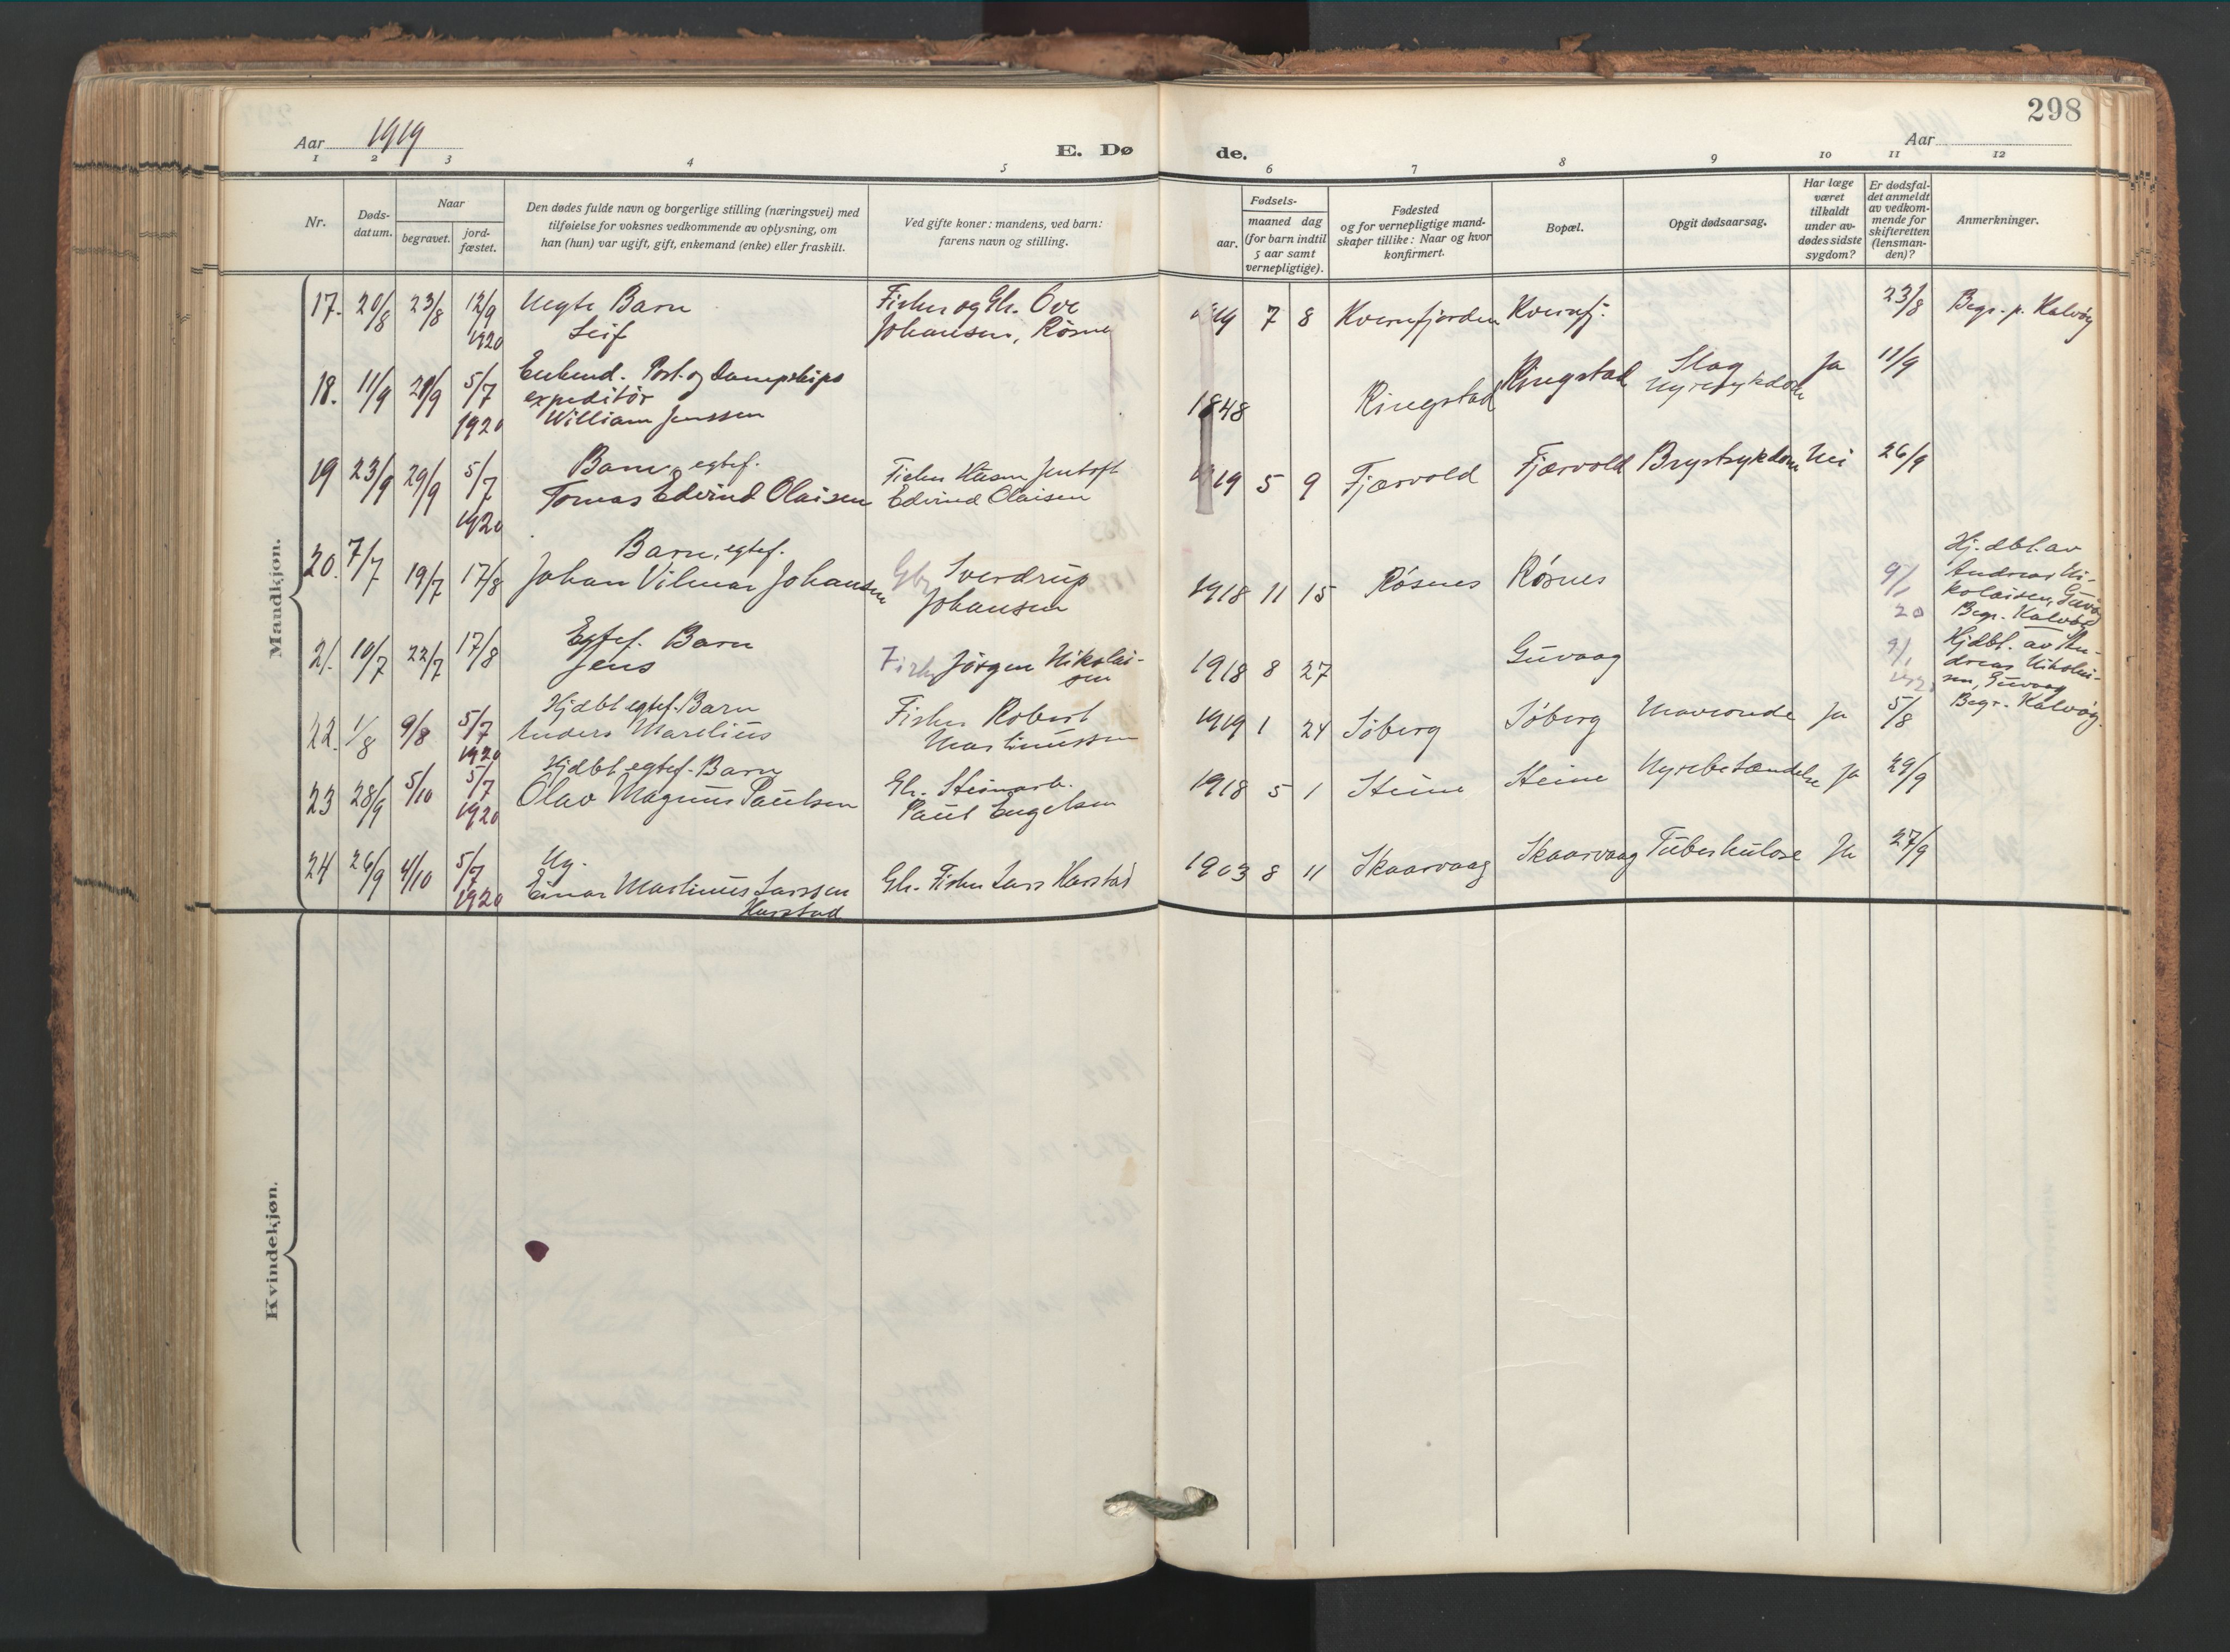 298
Aar 1919
E. Dø
de.
Aar
1 2 3 4 5 6 7 8 9 10 11 12
Nr.
Døds-
datum.
Naar
begravet.
jord-
fæstet.
Den dødes fulde navn og borgerlige stilling (næringsvei) med
tilføielse for voksnes vedkommende av oplysning, om
han (hun) var ugift, gift, enkemand (enke) eller fraskilt.
Ved gifte koner: mandens, ved barn:
farens navn og stilling.
Fødsels-
aar.
maaned dag
(for barn indtil
5 aar samt
vernepligtige).
Fødested
og for vernepligtige mand-
skaper tillike: Naar og hvor
konfirmert.
Bopæl.
Opgit dødsaarsag.
Har læge
været
tilkaldt
under av-
dødes sidste
sygdom?
Er dødsfal-
det anmeldt
av vedkom-
mende for
skifteretten
(lensman-
den)?
Anmerkninger.
Mandkjøn.
17. 20/8 23/8 12/9 1920
Uegte Barn
Leif
Fisker og Gbr. Ove
Johansen, Røsnes
1919 7 8 Kvernfjorden Kvernfj: 23/8 Begr. p. Kalvøy
18. 11/9 21/9 5/7 1920
Enkemd. Post. og Dampskips
expeditör
William Jenssen
1848 Ringstad Ringstad Slag
Nyresykdom Ja 11/9
19 23/9 29/9 5/7 1920
Barn, egtef.
Tomas Edvind Olaisen
Fisker Jentoft
Edvind Olaisen
1919 5 9 Fjærvold Fjærvold Brystsykdom Nei 26/9
20. 7/7 19/7 17/8
Barn, egtef.
Johan Vilmar Johansen
Gbr Sverdrup
Johansen
1918 11 15 Røsnes Røsnes 9/1 20
Hj. dbt. av
Andreas Ni-
kolaisen, Guvåg
Begr. Kalvøy
21. 10/7 22/7 17/8
Egtef. Barn
Jens
Fisker Jörgen Nikolai-
sen
1918 8 27 Guvaag 9/1
Hjdbt. av An-
dreas Nikolai-
sen, Guvaag
Begr. Kalvøy.
22. 1/8 9/8 5/7 1920
Hjdbt egtef. Barn
Anders Marelius
Fisker Robert
Martinussen
1919 1 24 Söberg Söberg Mavesonde Ja 5/8
23 28/9 5/10 5/7 1920
Hjdbt egtef. Barn
Olav Magnus Paulsen
Gbr. Steinarb.
Paul Engelsen
1918 5 1 Steine Steine Nyrebetændelse Ja 29/9
24 26/9 4/10 5/7 1920
Ug.
Einar Martinus Larssen
Harstad
Gbr. Fisker Lars Harstad
1903 8 11 Skaarvaag Skaarvaag Tuberkulose Ja 27/9
Kvindekjøn.